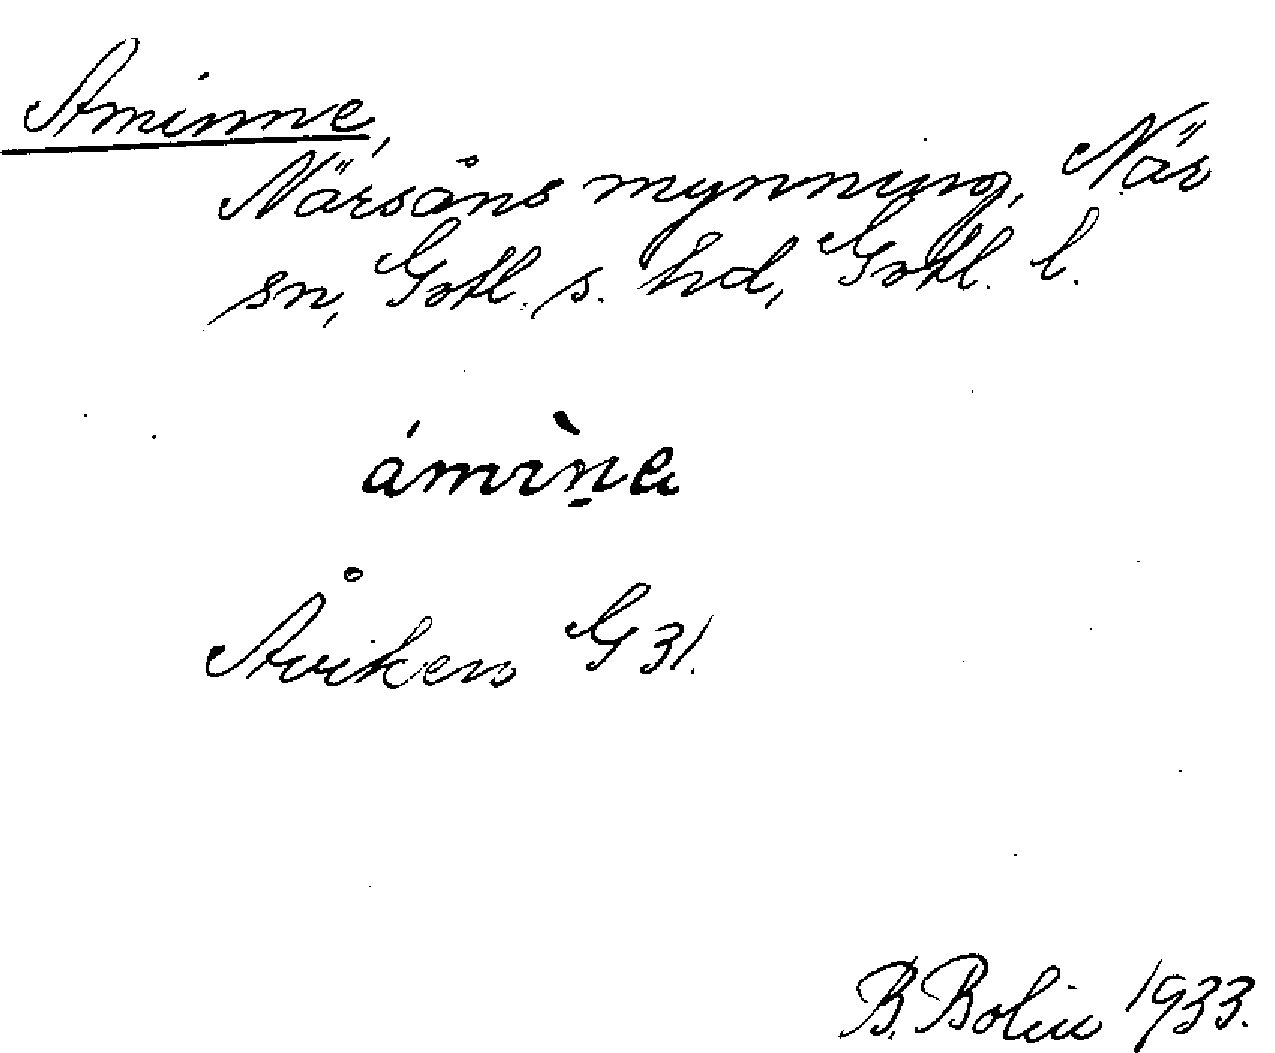 Aminne,
Närsåns mynning, När
sn, Gotl. s. hd, Gotl. l.
ámìṉe
Åvikers G 31.
B. Bolin 1933.